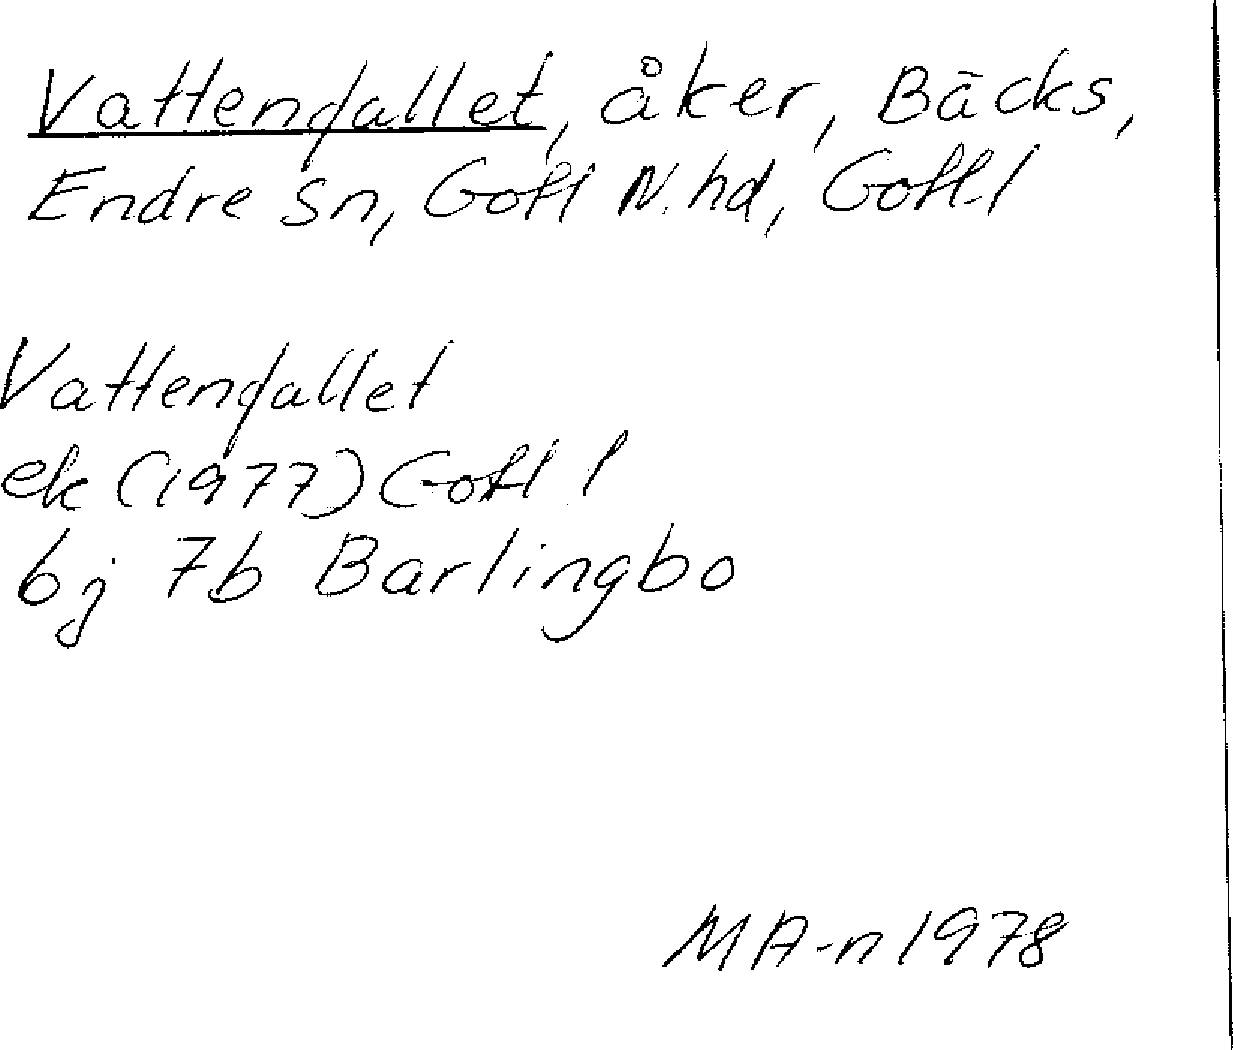 Vattenfallet, åker, Bäcks,
Endre sn, Gotl N. hd, Gotl. l
Vattenfallet
ek (1977) Gotl l
bj 7b Barlingbo
MA-n 1978